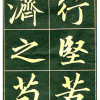 行堅苦
濟之